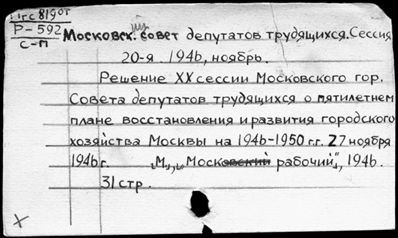 Пгс 819от
Р-592
С-П
Московск. совет депутатов трудящихся. Сессия
20-я. 1946, ноябрь.
Решение XX сессии Московского гор.
Совета депутатов трудящихся о пятилетнем
плане восстановления и развития городского
хозяйства Москвы на 1946-1950 г.г. 27 ноября
1946г. „М„, „Московский рабочий", 1946.
31 стр.